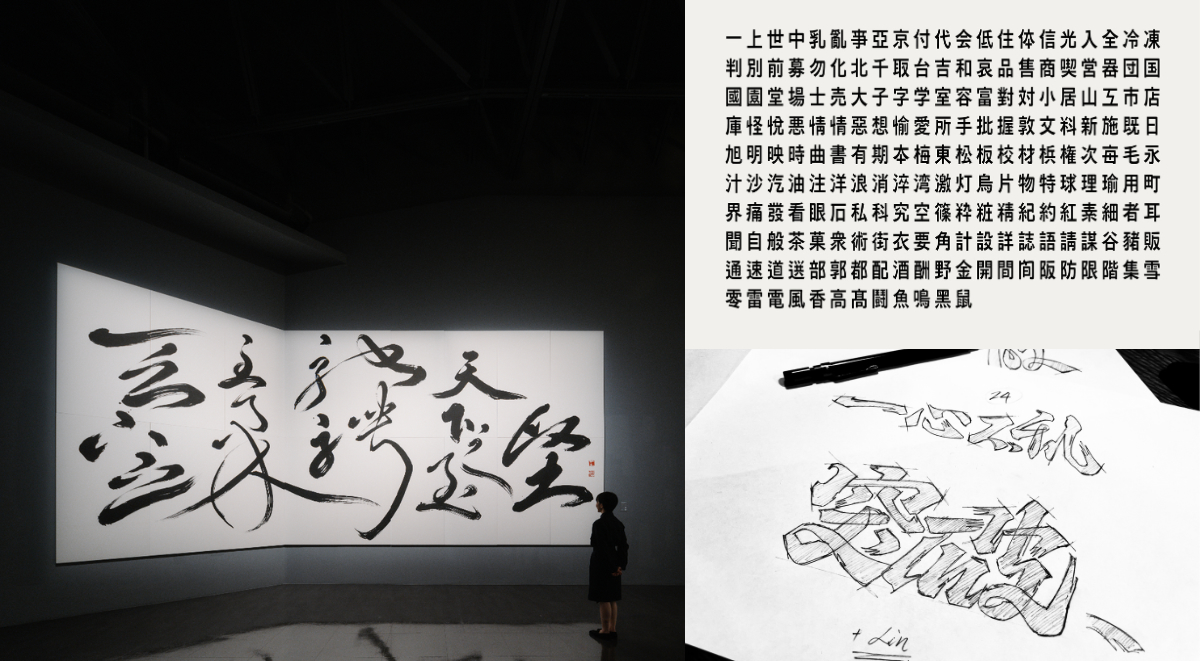 天下至
堅
一上世中乳亂爭亞京付代会低住体信光入全冷凍
判別前募勿化北千取台吉和哀品售商喫営器団国
國園堂場士売大子字学室容富對対小居山互市店
庫怪悅悪情情惡想愉愛所手批握敦文料新施既日
旭明映時曲書有期本梅東松板校材梹権次毎毛永
汁沙汽油注洋浪消淬湾激灯鳥片物特球理瑜用町
界痛發看眼石私科究空篠粋粧精紀約紅素細者耳
聞自般茶菓衆術街衣要角計設詳誌語請謀谷豬販
通速道送部郭都配酒酬野金開間阪防限階集雪
零雷電風香高髙鬪魚鳴黑鼠
24
一心不乱
+ Lin